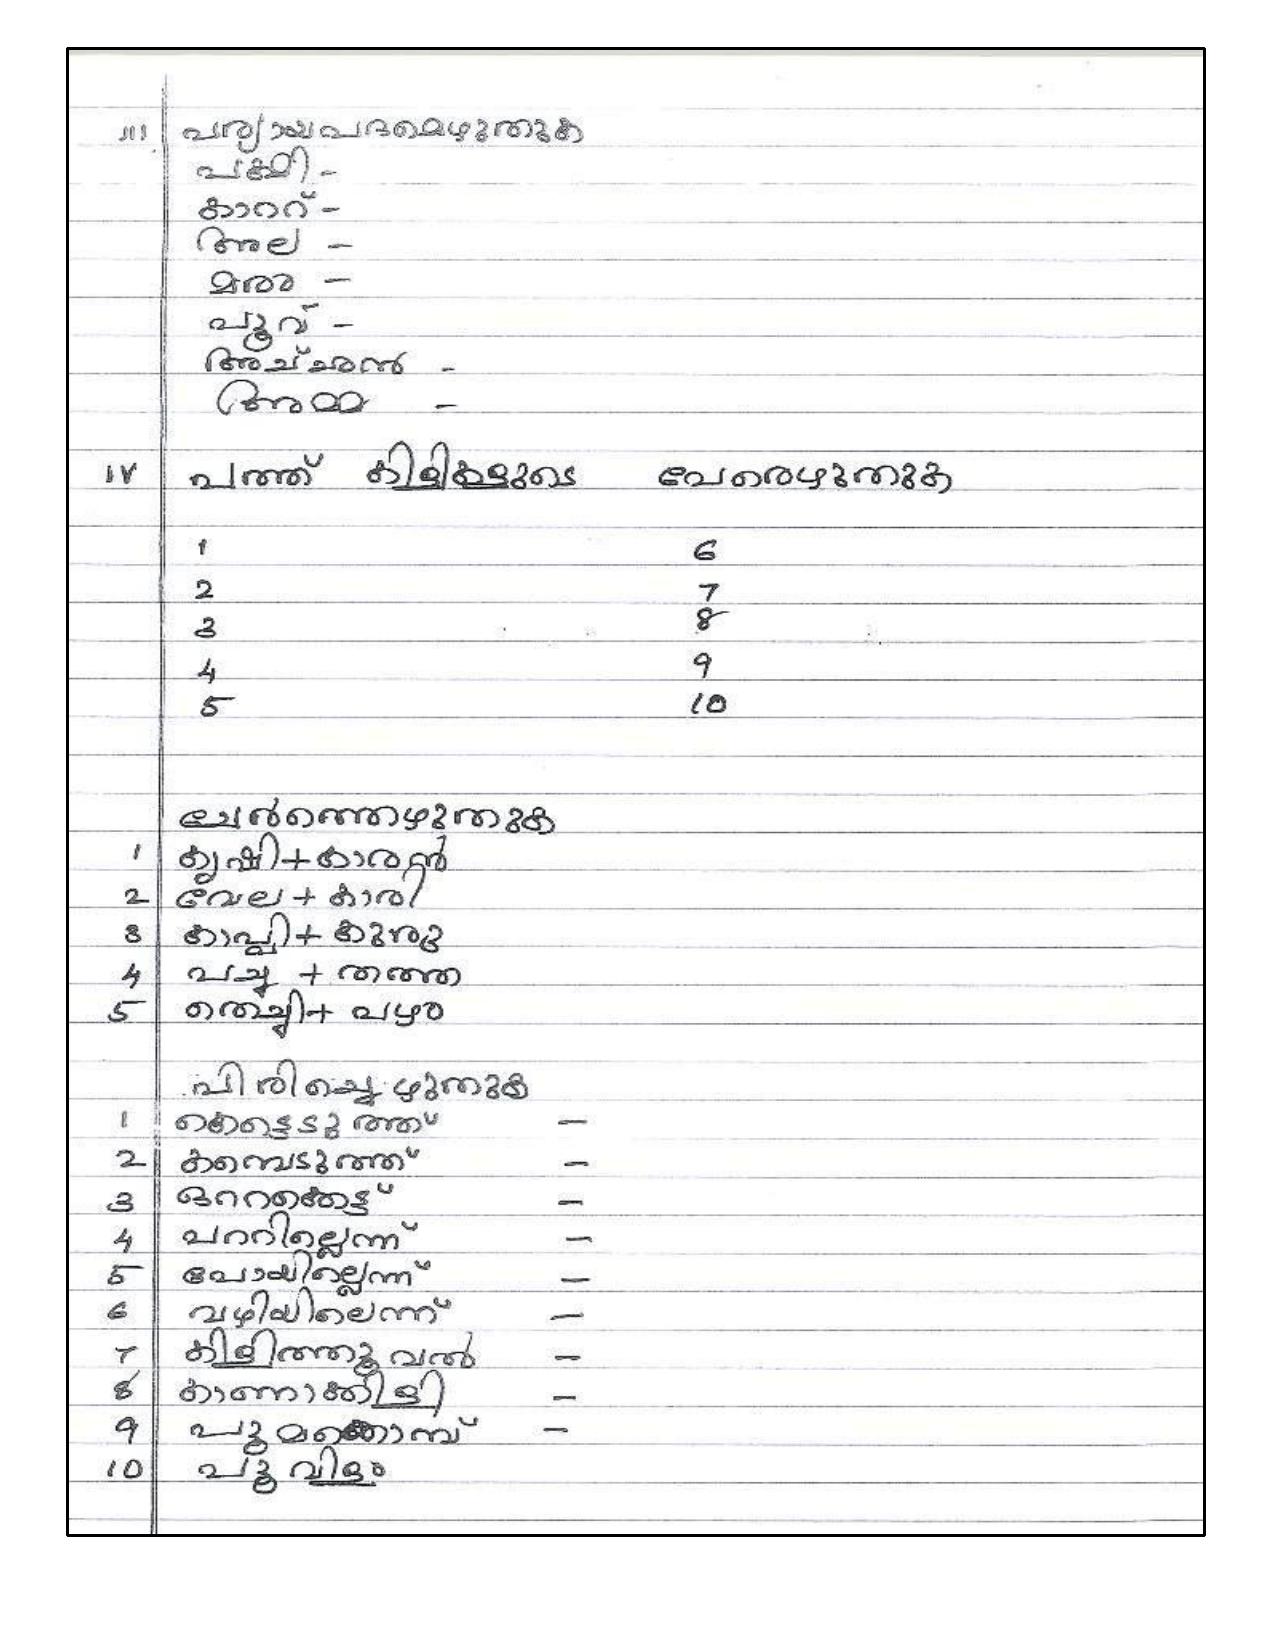 III പര്യായപദമെഴുതുക
പക്ഷി -
കാററ് -
അല -
മരം -
പൂവ് -
അച്ഛൻ -
അമ്മ -
IV പത്ത് കിളികളുടെ പേരെഴുതുക
1 6
2 7
3 8
4 9
5 10
ചേർത്തെഴുതുക
1 കൃഷി+കാരൻ
2 വേല + കാരി
3 കാപ്പി+ കുരു
4 പച്ച + തത്ത
5 തെച്ചി+ പഴം
പിരിച്ചെഴുതുക
1 കെട്ടെടുത്ത് -
2 കമ്പെടുത്ത് -
3 ഒററക്കെട്ട് -
4 പററില്ലെന്ന് -
5 പോയില്ലെന്ന് -
6 വഴിയിലെന്ന് -
7 കിളിത്തൂവൽ -
8 കാണാക്കിളി -
9 പൂമരക്കൊമ്പ് -
10 പൂവിളം